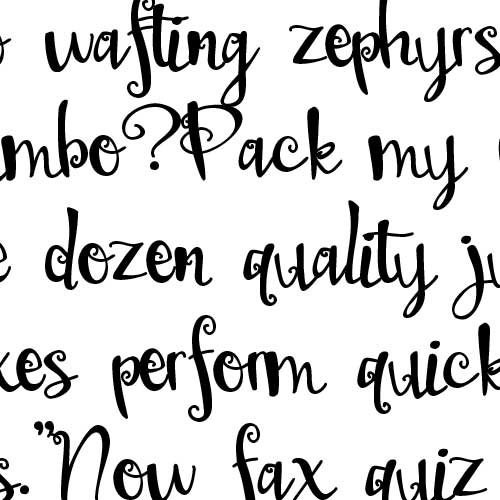 wafting zephyrs
mbo? Pack my
dozen quality ju
xes perform quick
s." Now fax quiz